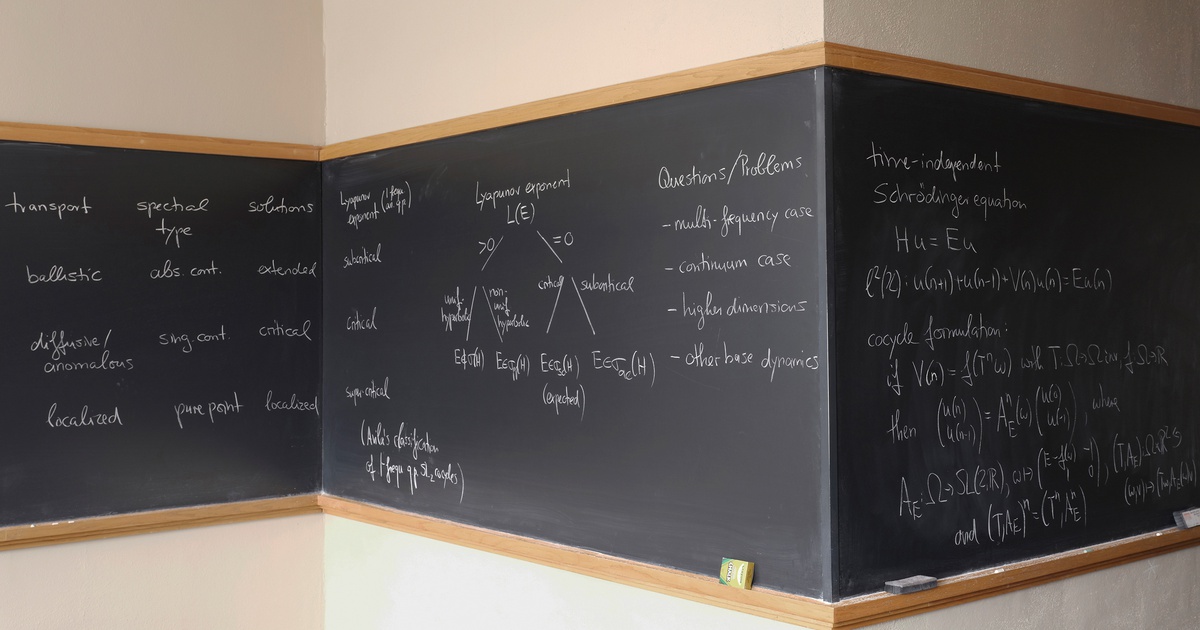 transport spectral type solutions
ballistic abs. cont. extended
diffusive/ anomalous sing. cont. critical
localized pure point localized
Lyapunov exponent (1 frequ
subcritical
critical
supercritical
(Avila's classification
of 1-frequ qp SL₂ cocycles)
Lyapunov exponent
L(E)
>0 =0
unif. hyperbolic non-unif hyperbolic critical subcritical
E∉σ(H) E∈σpp(H) E∈σsc(H) E∈σac(H)
(expected)
Questions/Problems
- multi-frequency case
- continuum case
- higher dimensions
- other base dynamics
time-independent
Schrödinger equation
Hu = Eu
ℓ²(ℤ): u(n+1)+u(n-1)+V(n)u(n)=Eu(n)
cocycle formulation:
if V(n) = f(Tⁿω) with T:Ω→Ω inv, f:Ω→ℝ
then (u(n) u(n-1)) = Aᴱⁿ(ω) (u(0) u(-1)), where
A_E: Ω→SL(2,ℝ), ω↦(E-f(ω) -1 1 0), (T,A_E):
and (T,A_E)ⁿ=(Tⁿ,A_Eⁿ)